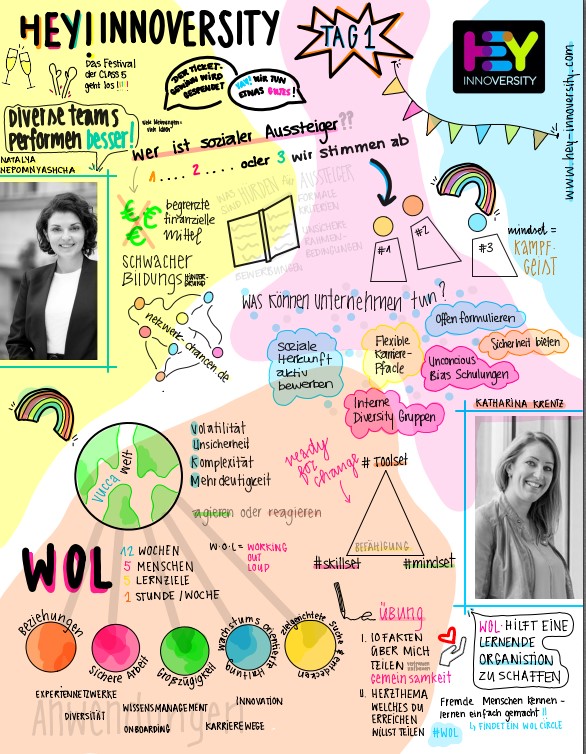 HEY! INNOVERSITY
TAG 1
HEY
INNOVERSITY
www.hey-innoversity.com
Das Festival
der CLASS 5
geht los !!!!
DER TICKET-
GEWINN WIRD
GESPENDET
HEY! WIR TUN
ETWAS GUTES!
DIVERSE TEAMS
PERFORMEN besser!
viele Meinungen =
viele Ideen
NATALYA
NEPOMNYASHCHA
Wer ist sozialer Aussteiger??
1.... 2 .... oder 3 wir stimmen ab
€ € €
begrenzte
finanzielle
Mittel
SCHWACHER
BILDUNGSHINTER-
GRUND
netzwerk-chancen.de
WAS
SIND HÜRDEN für AUSSTEIGER
FORMALE
KRITERIEN
UNSICHERE
RAHMEN-
BEDINGUNGEN
BEWERBUNGEN
#1
#2
#3
mindset =
KAMPF-
GEIST
WAS KÖNNEN UNTERNEHMEN TUN?
Offen formulieren
Soziale
Herkunft
aktiv
bewerben
Flexible
Karriere-
Pfade
Sicherheit bieten
Unconcious
Bias Schulungen
Interne
Diversity Gruppen
KATHARINA KRENTZ
Vucca Welt
Volatilität
Unsicherheit
Komplexität
Mehrdeutigkeit
agieren oder reagieren
ready
for
change
# Toolset
BEFÄHIGUNG
#skillset
#mindset
WOL
12 WOCHEN
5 MENSCHEN
5 LERNZIELE
1 STUNDE / WOCHE
W·O·L = WORKING
OUT
LOUD
Beziehungen
Sichere Arbeit
Großzügigkeit
wachstums orientierte
Haltung
zielgerichtete Suche
& entdecken
Anwendungen
EXPERTENNETZWERKE
DIVERSITÄT
WISSENSMANAGEMENT
ONBOARDING
INNOVATION
KARRIEREWEGE
Übung
I. 10 FAKTEN
ÜBER MICH
TEILEN
Gemeinsamkeit
II. HERZTHEMA
WELCHES DU
ERREICHEN
WILLST TEILEN
WOL· HILFT EINE
LERNENDE
ORGANISTION
ZU SCHAFFEN
Fremde Menschen kennen-
lernen einfach gemacht!!
#WOL
FINDET EIN WOL CIRCLE